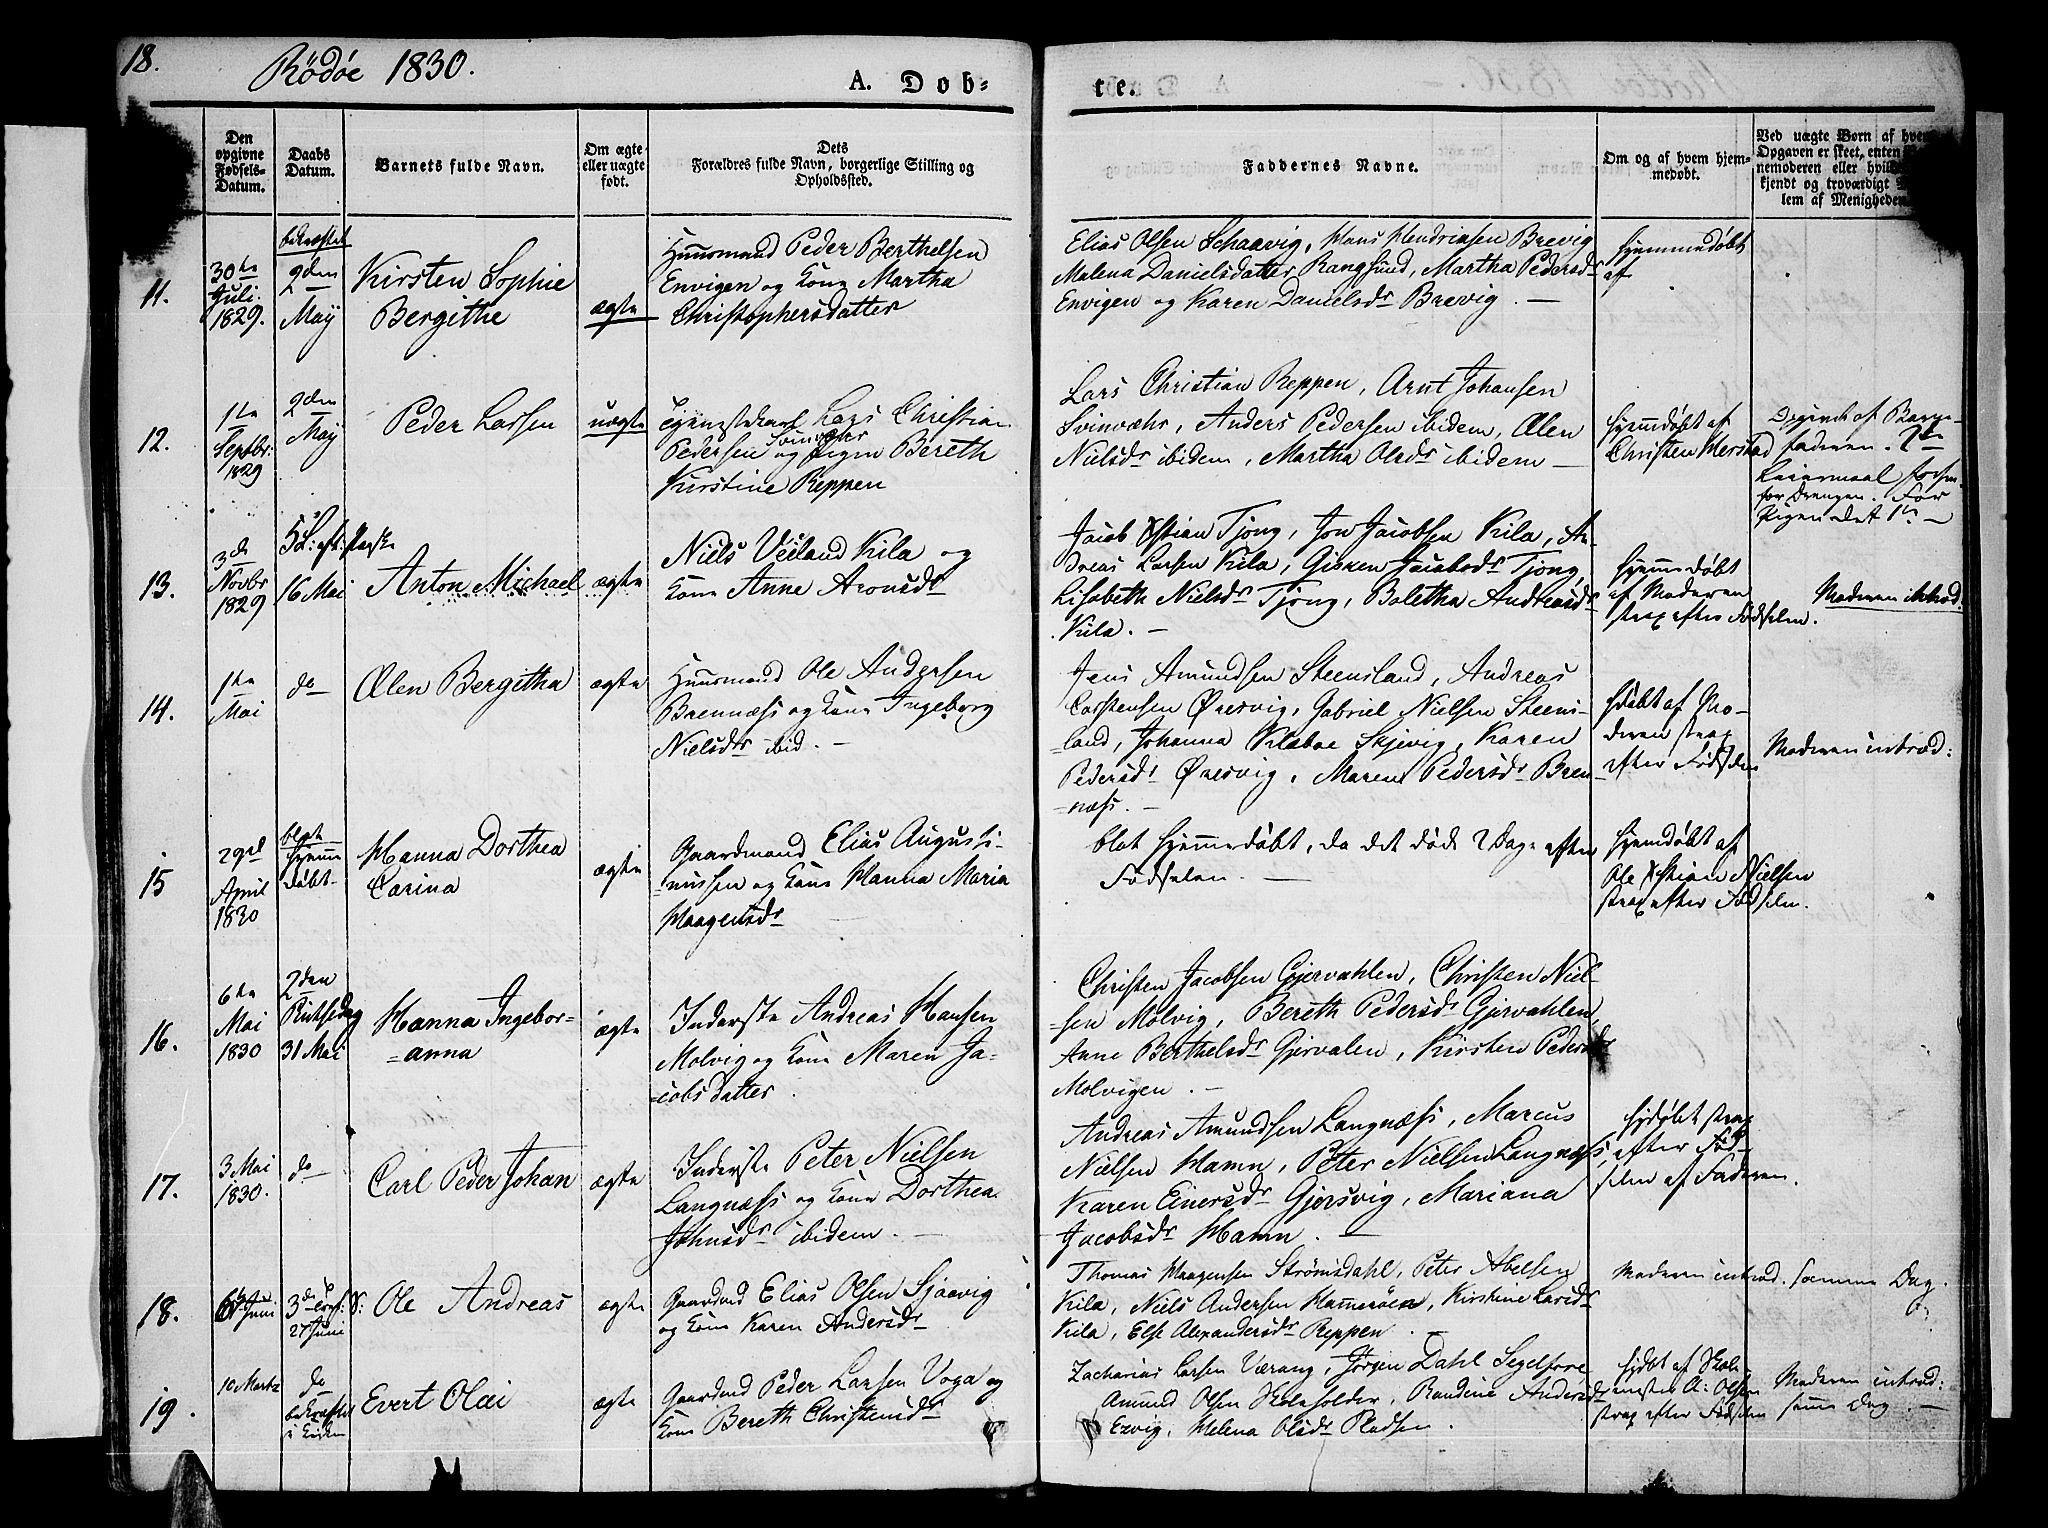 18.
Rödöe 1830.
A. Døb=
te.
Den opgivne Fødsels-Datum.
Daabs Datum.
Barnets fulde Navn.
Om ægte eller uægte født.
Dets Forældres fulde Navn, borgerlige Stilling og Opholdssted.
Faddernes Navne.
Om og af hvem hjemmedøbt.
Ved uægte Børn af hvem Opgaven er skeet, enten
nemoderen eller hvil
kjendt og troværdigt
lem af Menigheden
11.
30te Juli. 1829.
bekræftet 2den May
Kirsten Sophie
Bergithe
ægte
Huusmand Peder Berthelsen
Envigen og Kone Martha
Christophersdatter
Elias Olsen Schaavig, Hans Hendriksen Brevig
Malena Danielsdatter Rangsund, Martha Pedersdr
Envigen og Karen Danielsdr Brevig. —
hjemmedøbt
af
12.
1te Septbr: 1829
2den May
Peder Larsen
uægte
Lars Christian
Pedersen Svinvær og Pigen Bereth
Kirstine Reppen
Lars Christian Reppen, Arnt Johansen
Svinvæhr, Anders Pedersen ibidem, Ælen
Nielsdr ibidem, Martha Olsdr ibidem —
hjemdøbt af
Christen Merstad
Opgivet af Barne-
faderen. 2de
Leiermaal
for Drengen. For
Pigen det 1te —
13.
3de Novbr 1829
5 S: eft: Paaske
16 Mai
Anton Michael
ægte
Niels Veiland Kila og
Kone Anne Aronsdr
Jacob Xstian Tjong, Jon Jacobsen Kila, An-
dreas Larsen Kila, Gisken Jacobsdr Tjong,
Lisabeth Nielsdr Tjong, Boletha Andreasdr
Kila. —
hjemmedøbt
af Moderen
strax efter Fødselen.
Moderen introd.
14.
1te Mai
do
Ælen Bergitha
ægte
Huusmand Ole Andersen
Brennæss og Kone Ingeborg
Nielsdr ibid. —
Jens Amundsen Steensland, Andreas
Carstensen Øresvig, Gabriel Nielsen Steens-
land, Johanna Kildboe Skjevig, Karen
Pedersdr Øresvig, Maren Pedersdr Bren-
næss. —
hjdøbt af Mo-
deren strax
efter Fødselen
Moderen introd:
15
29de April 1830
blot hjemmedøbt
Hanna Dorthea
Carina
ægte
Gaardmand Elias Augusti-
nussen og Kone Hanna Maria
Haagensdr
blot hjemmedøbt, da det døde 2 Dage efter
Fødselen. —
hjemdøbt af
Ole Xstian Nielsen
strax efter Fødselen.
16.
6te Mai 1830
2den Pintsedag
31 Mai
Hanna Ingebor=
=anna
ægte
Inderste Andreas Hansen
Molvig og Kone Maren Ja-
cobsdatter.
Christen Jacobsen Gjervahlen, Christen Niel-
sen Molvig, Bereth Pedersdr Gjervahlen,
Anne Berthelsdr Gjervalen, Kirsten Pedersdr
Molvigen. —
17.
3 Mai 1830.
do
Carl Peder Johan
ægte
Inderste Peter Nielsen
Langnæss og Kone Dorthea
Johnsdr ibidem. —
Andreas Amundsen Langnæss, Marcus
Nielsen Hamn, Peter Nielsen Langnæss,
Karen Einersdr Gjersvig, Mariana
Jacobsdr Hamn. —
hjdøbt strax
efter Fød-
selen af Faderen.
18.
Juni
27 Juni
Ole Andreas
ægte
Gaardmd Elias Olsen Sjaavig
og Kone Karen Andersdr
Thomas Haagensen Strömsdahl, Peter Abelsen
Kila, Niels Andersen Hammerøen, Kirstine Larsdr
Kila, Else Alexandersdr Reppen. —
Moderen introd. samme Dag.
19.
10 Martz
do
bekræftet
i Kirken
Evert Olai
ægte
Gaardmd Peder Larsen Voga og
Kone Bereth Christensdr
Zacharias Larsen Værang, Jørgen Dahl Segelfore
Amund Olsen Skoleholder, Randine Andersdr
Exvig, Helena Olsdr Pladsen.
hjdøbt af Skole-
mester A: Olsen
strax efter Fødselen
Moderen introd:
samme Dag. —